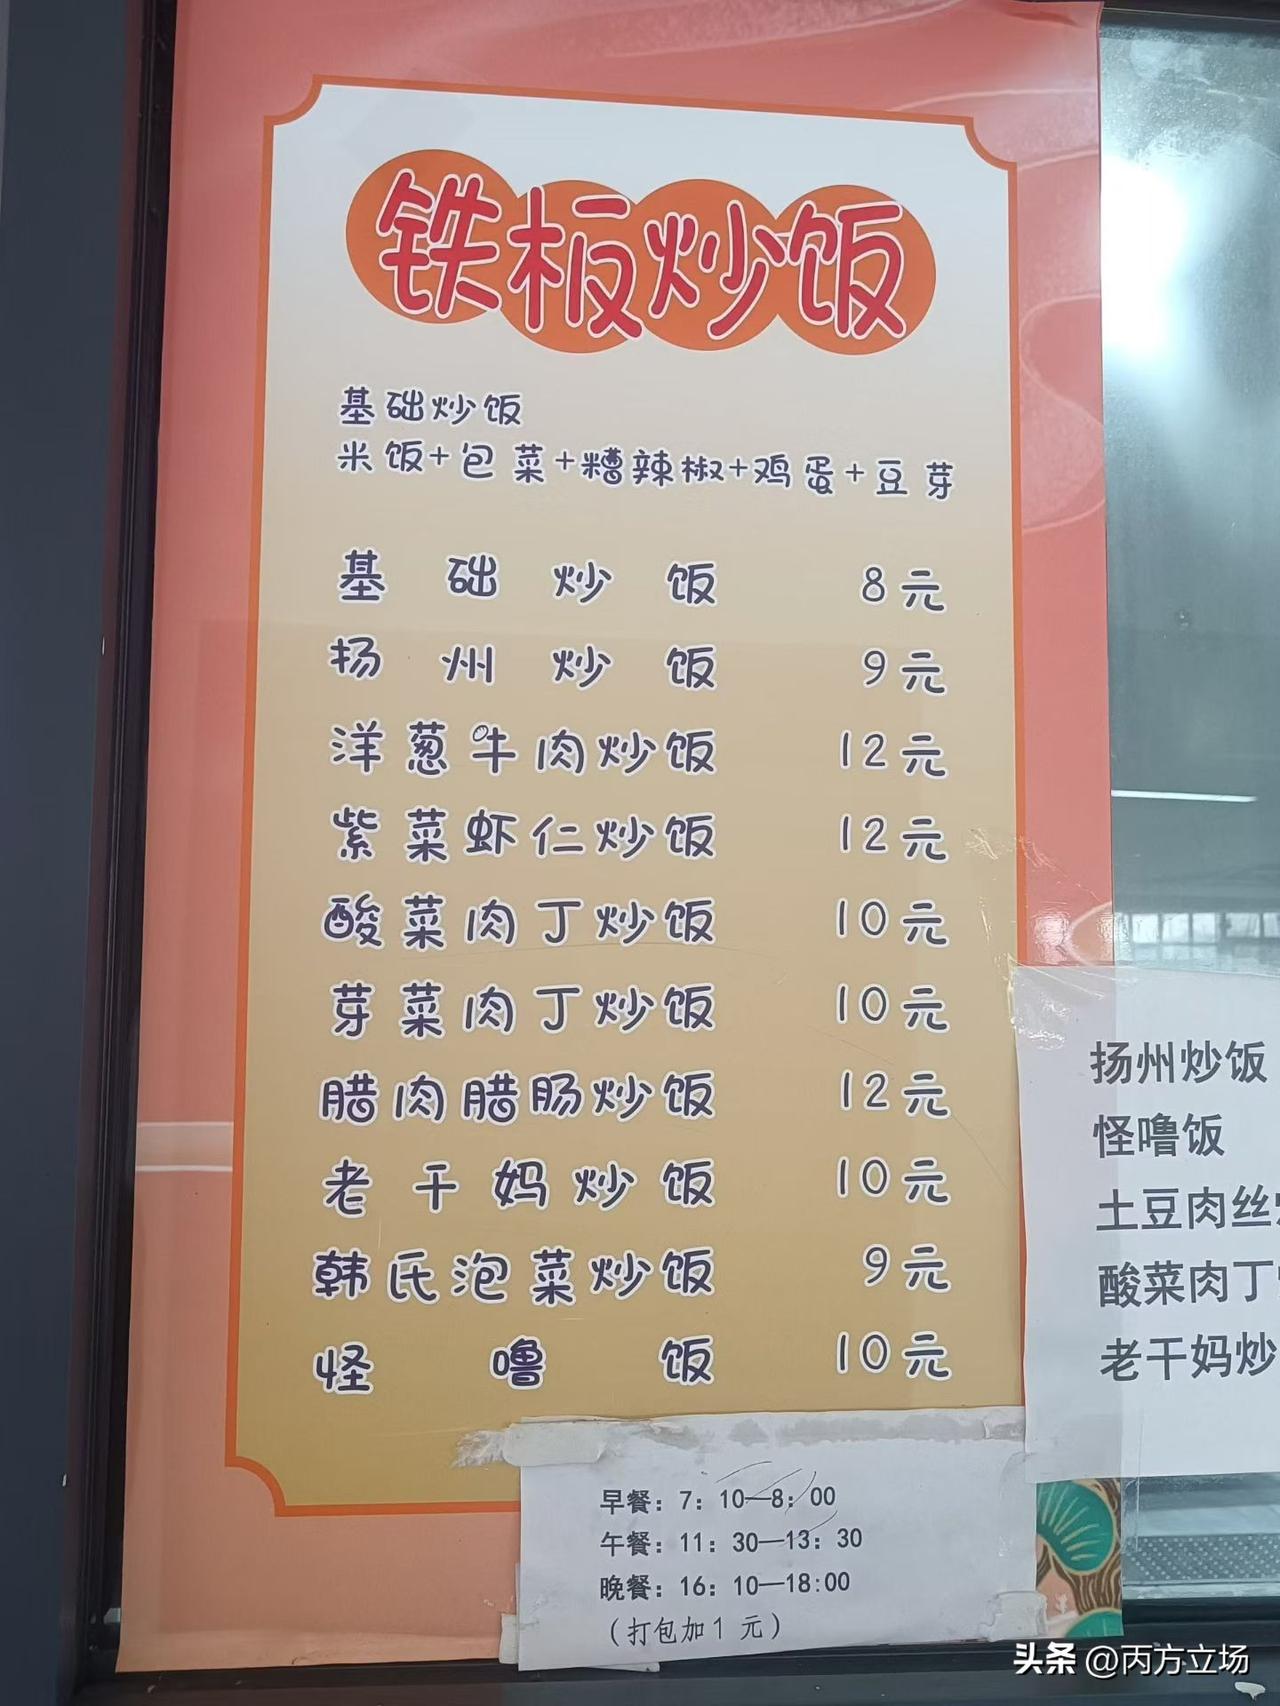 铁板炒饭
基础炒饭
米饭+包菜+糟辣椒+鸡蛋+豆芽
基础炒饭 8元
扬州炒饭 9元
洋葱牛肉炒饭 12元
紫菜虾仁炒饭 12元
酸菜肉丁炒饭 10元
芽菜肉丁炒饭 10元
腊肉腊肠炒饭 12元
老干妈炒饭 10元
韩氏泡菜炒饭 9元
怪噜饭 10元
扬州炒饭
怪噜饭
土豆肉丝
酸菜肉丁
老干妈炒
早餐：7：10—8：00
午餐：11：30—13：30
晚餐：16：10—18:00
（打包加1 元）
头条 @丙方立场